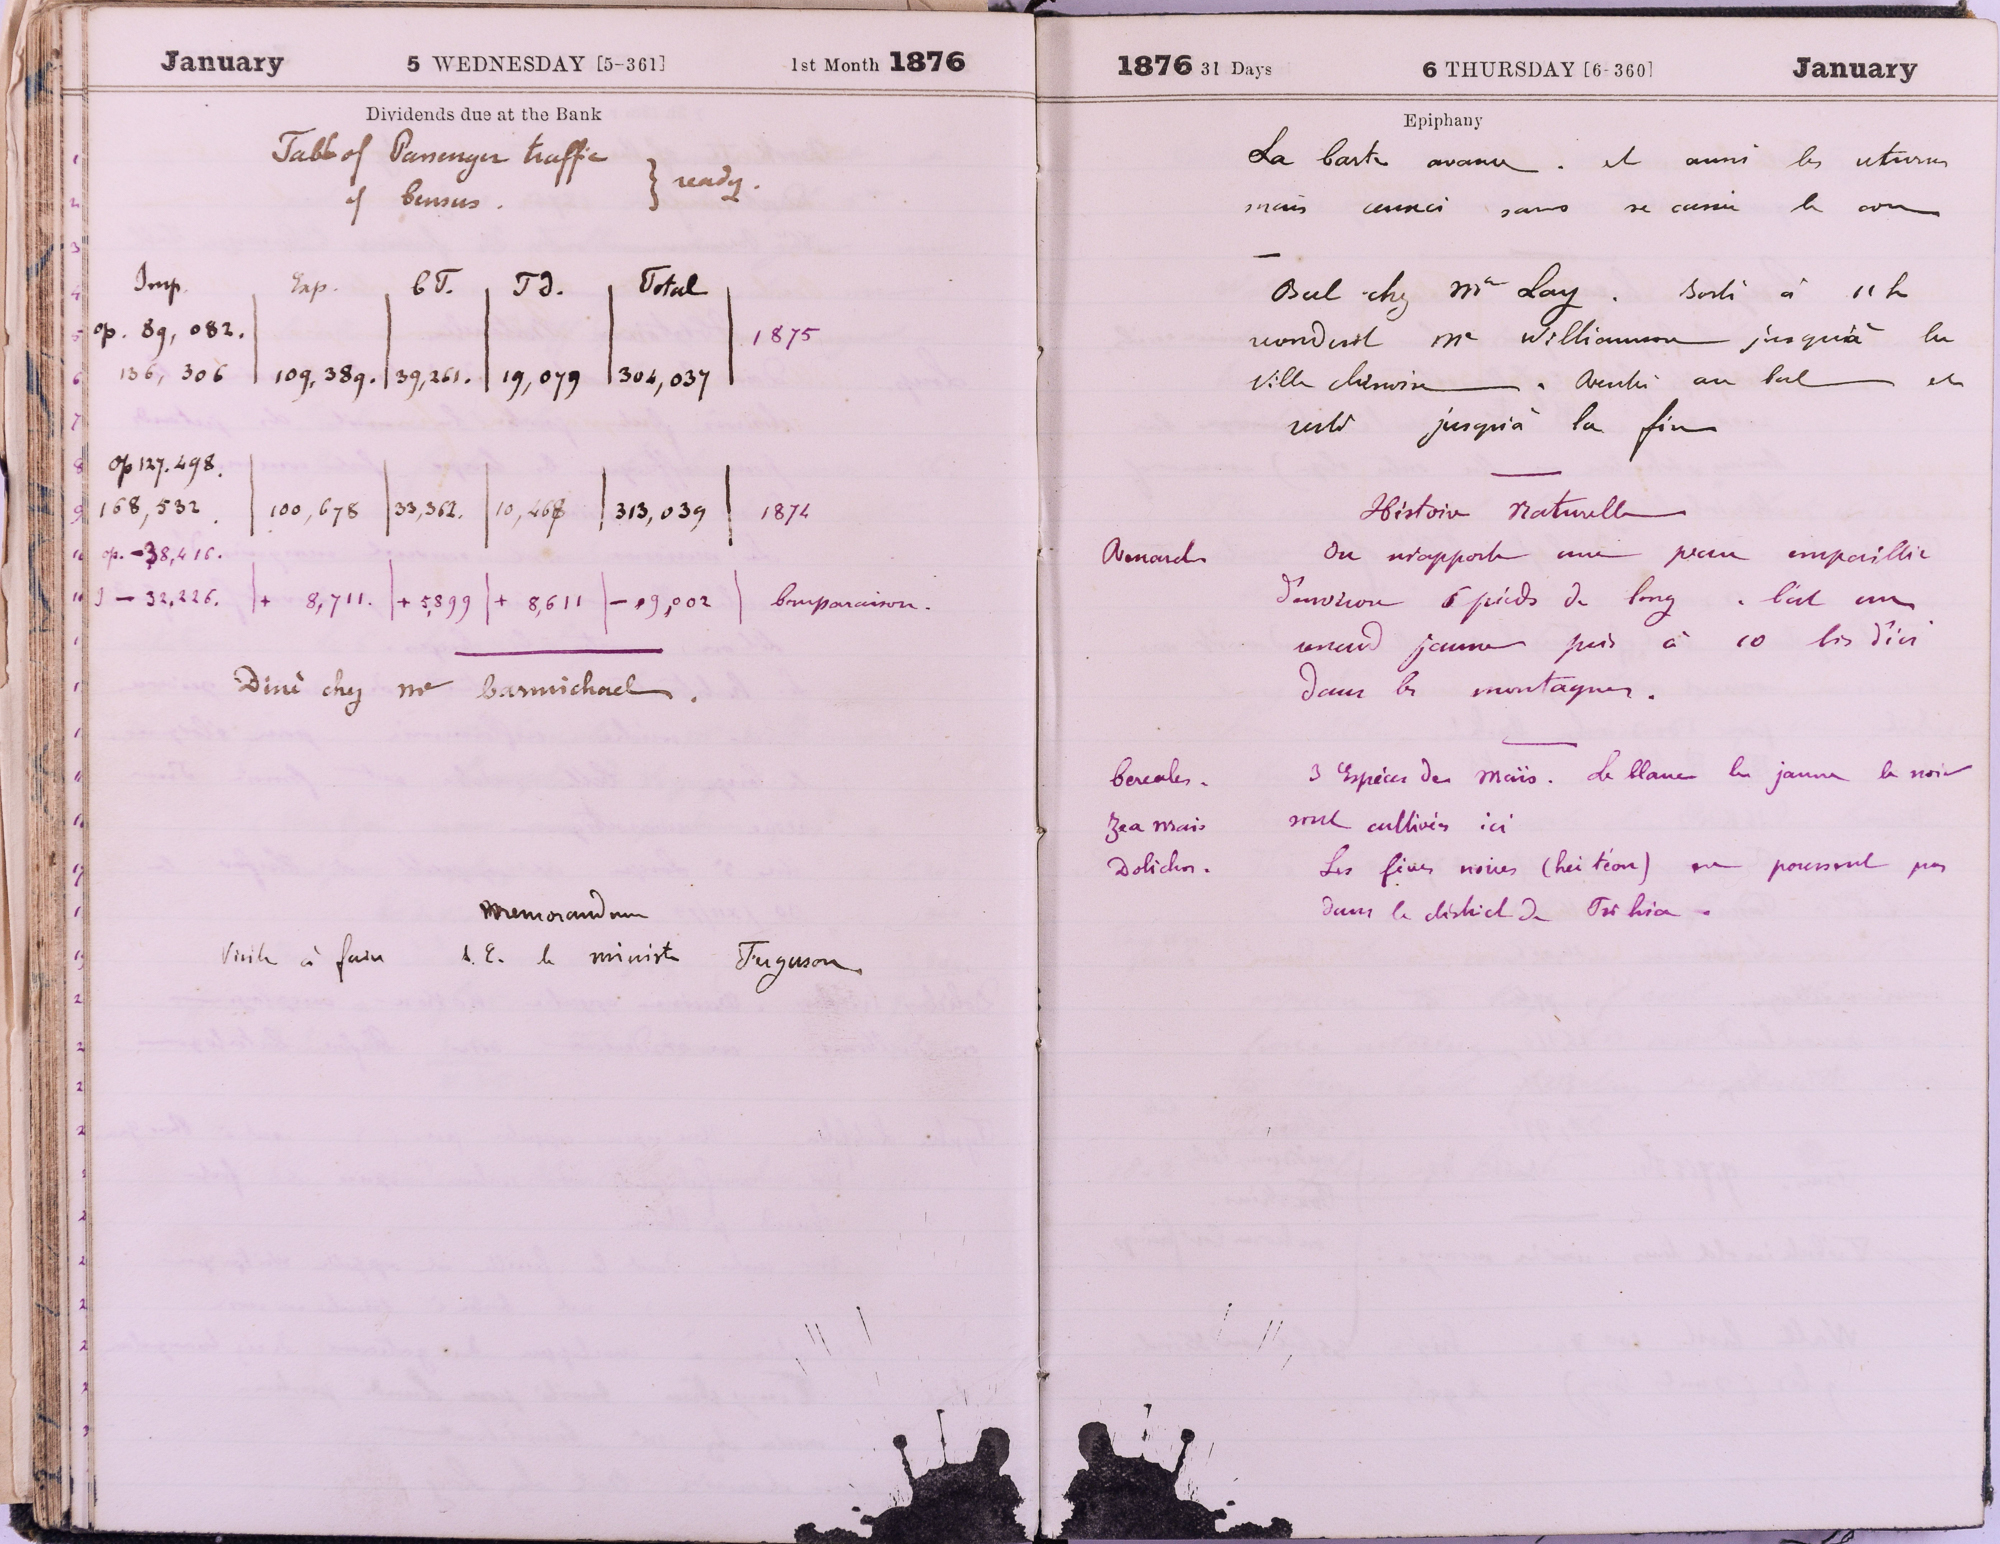 January 5 WEDNESDAY [5-361] 1st Month 1876
Dividends due at the Bank
Table of Passenger traffic
of Census .
} ready.
Imp. Exp. C T. T D. Total
op. 89, 082.
1875
136, 306 109,389. 39,261. 19,079 304,037
op 127.498.
168,532 100,678 33,362. 10,468 313,039 1874
op. - 38,416.
- 32,226. + 8,711. + 5,899 + 8,611 - 9,002 Comparaison.
Diné chez Mr Carmichael .
Memorandum
Visite à faire S. E. le ministre Ferguson
1876 31 Days 6 THURSDAY [6-360] January
Epiphany
La carte avance . et aussi les
mais sans se le cou
Bal chez Mr Lay . Sorti à 11 h
reconduit Mr Williamson jusqu'à la
ville chinoise . Rentré au bal et
resté jusqu'à la fin
Histoire Naturelle
Renard On m'apporte une peau empaillée
d'environ 6 pieds de long . C'est un
renard jaune pris à 10 lis d'ici
dans les montagnes .
Cereales . 3 Espèces de Maïs . Le blanc le jaune le noir
Zea mais sont cultivés ici
Dolichos . Les fèves noires (hei téou) ne poussent pas
dans le district de